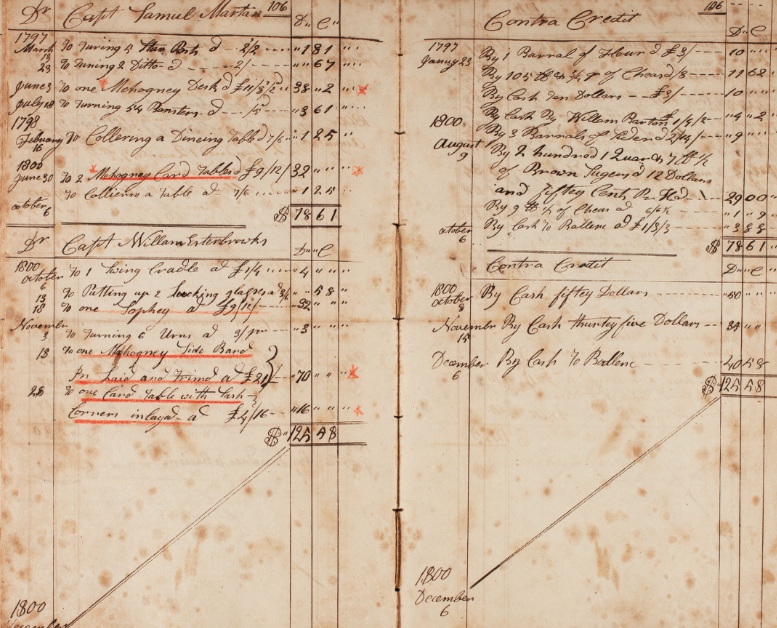 Dr Capt Samuel Martin 106 D C
1797
March 13 To Turing 5 Bed Posts d 2/2 1 81
23 To Tuning 2 Ditto d 2/ " 67
June 3 To one Mahogney Desk d £11/8/2 38 " 2
July 18 To Turning 54 Banisters d /5 3 61
1798
Febuary 16 To Collering a Dineing Table d 7/6 1 25
1800
June 30 To 2 Mahogney Card Tables d £9/12/ 32 " "
October 6 To Collierin a Table at 7/6 1 25
$ 78 61
Dr Capt William Esterbrooks D C
1800
October 6 To 1 Swing Cradle at £1/4 4 " "
13 To Putting up 2 Loocking glases at 3/6 " 58
18 To one Sophey at £9/12/ 32 " "
November 3 To Turning 6 Urns at 3/pr 3 "
13 To one Mahogney Side Bard
In Laid and Trimd at £21/ 70 " "
28 To one Card Table with Sash
Corners inlayd at £4/16 16 " "
$ 125 58
1800
December
106
Contra Credit D C
1797
January 23 By 1 Barral of Flour d £3/ 10 "
By 105 lb of Chears d /8 11 62
By Cash Ten Dollars £3/ 10
1800 By Cash By Willam Bartin 1/4/6 4 2
August 9 By 3 Barrals of Sider d 2/14/ 9 "
By 2 hundrad 1 Quar & 7 lb ½
of Brown Sugers d 12 Dollars
and fiftey Cents Pr Hd 29 00
By 9 lb ½ of Chears ad 6/½ 1 9
October 6 By Cash To Ballene d £1/3/3 3 88
$ 78 61
Contra Cretit D C
1800
October 8 By Cash fiftey Dollars 50 "
Novembr 15 By Cash Thurtey five Dollars 34 "
December 6 By Cash To Ballene 40 58
$ 125 58
1800
December
6